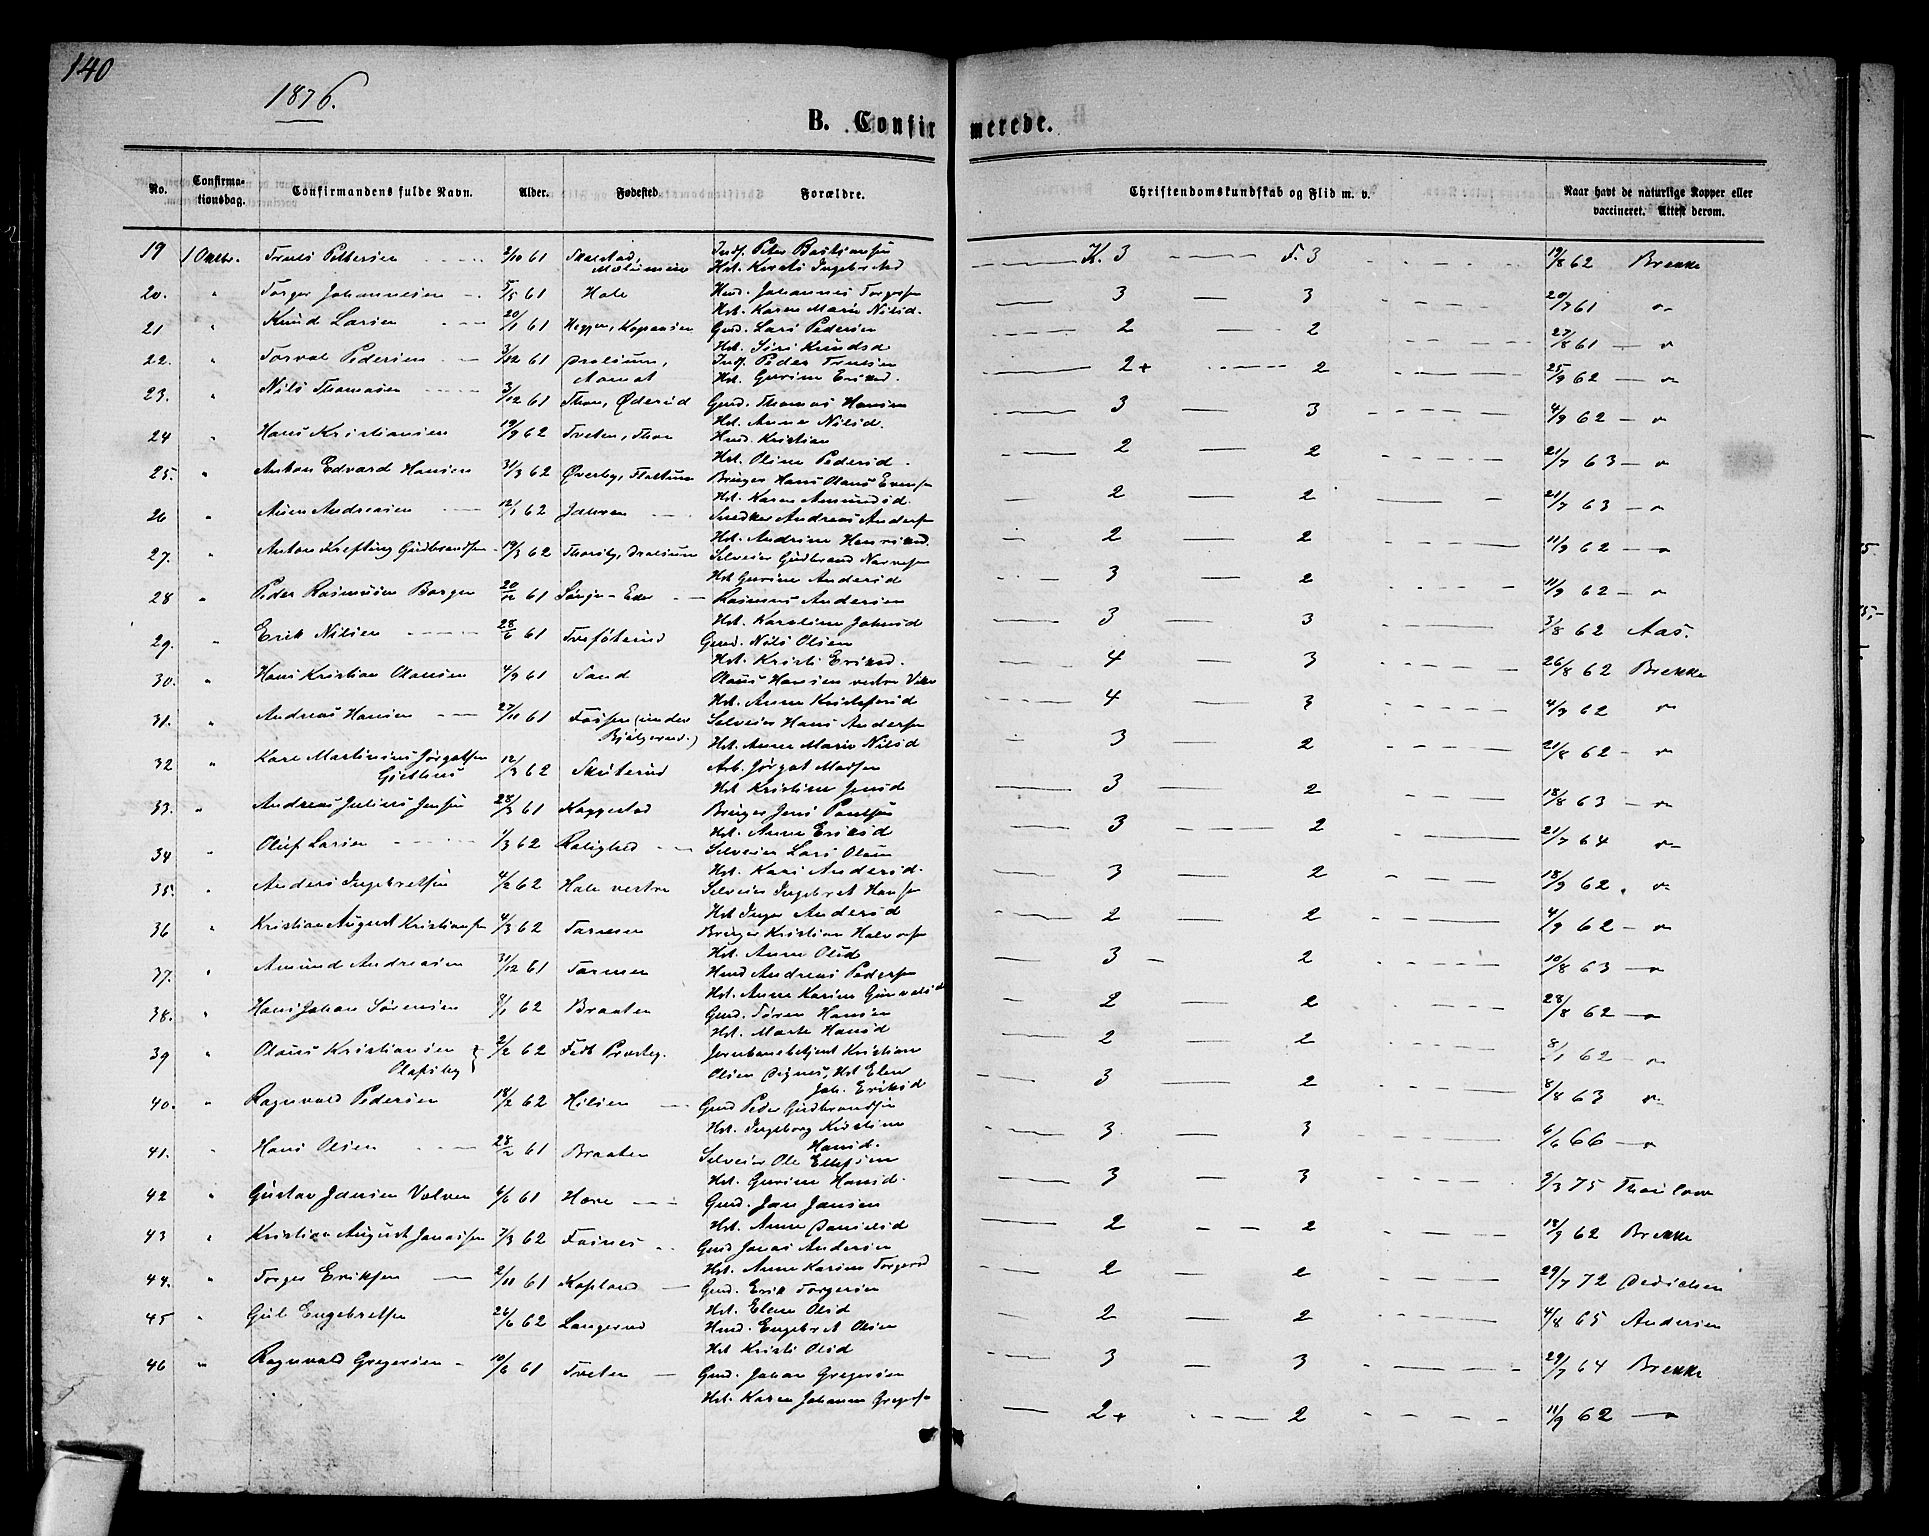 140
1876.
B. Confirmerede.
No. Confirmationsdag. Confirmandens fulde Navn. Alder. Fødested. Forældre. Christendomskundskab og Flid m. v. Naar havt de naturlige Kopper eller vaccineret. Attest derom.
19 1 Octbr. Pettersen 2/10 61 Inds. Peter Bastiansen K. 3 F. 3 19/8 62 Brekke
Hst.
20. " Torger Johannesen 5/5 61 Hole Johannes Torgersen 3 3 20/7 61
Hst. Karen Marie Nilsd.
21 " Knud Larsen 20/1 61 Gmd. Lars Pedersen 2 2 27/8 61
Hst. Siri Knudsd
22. " Torval Pedersen 3/12 61 Inds. Peder 2+ 2 25/9 62
Hst. Gurine Eriksd.
23. " Nils Thomasen 3/12 61 Thon, Øderud Gmd. Thomas Hansen 3 3 4/9 62
Hst. Anne Nilsd.
24 " Hans Kristiansen 19/9 62 Tveten, Thon Kristian 2 2 21/7 63
Hst. Oline Pedersd.
25. " Anton Edvard Hansen 31/3 62 Øverby, Bruger Hans Olaus Evensen 2 2 21/7 63
Hst. Karen Amundsd
26 " Andreasen 12/1 62 Jahren Snedker Andreas Andersen 2 2 11/9 62
Hst. Andrine Henriksd.
27. " Anton Krefting Gudbrandsen 19/3 62 Thorsby, Selveier Gudbrand 3 2 11/9 62
Hst Gurine Andersd
28 " Peder Rasmusen 20/12 61 Rasmus Andersen 3 3 3/8 62 Aas.
Hst. Karoline Johnsd
29. " Erik Nilsen 28/6 61 Gmd. Nils Olsen 4 3 26/8 62 Brekke
Hst. Kristi Eriksd.
30. " Hans Kristian Olausen 4/9 61 Sand Olaus Hansen vestre 4 3 4/9 62
Hst. Anne Kristofersd
31. " Andreas Hansen 27/11 61 Fossen (under Selveier Hans Andersen 3 2 21/8 62
Bjølgerud.) Hst. Anne Marie Nilsd
32 " Karl Martinius Jørgensen 12/3 62 Skuterud Arb. Madsen 3 2 18/8 63
Hst Kristine Jensd
33. " Andreas Julius Jensen 28/3 61 Kaggestad Bruger Jens Paulsen 3 2 21/7 64
Hst. Anne Eriksd
34 " Oluf Larsen 1/3 62 Rolighed Selveier Lars Olsen 3 2 18/9 62
Hst. Kari Andersd.
35. " Anders Ingebretsen 4/2 62 Hole vestre Selveier Ingebret Hansen 2 2 4/9 62
Hst Inger Andersd
36 " Kristian August Kristiansen 4/3 62 Bruger Kristian Halvorsen 3 2 10/8 63
Hst. Anne Olsd
37. " Amund Andreasen 31/12 61 Andreas Pedersen 2 2 28/8 62
Hst. Anne Karine
38. " Hans Johan Sørensen 8/1 62 Braaten Gmd. Søren Hansen 2 2 8/1 62
Hst. Marte Hansd
39 " Olaus Kristiansen 2/2 62 Jernbanebetjent Kristian 3 2 8/8 63
Olafsby Olsen Hst Elen
Joh. Eriksd
40. " Ragnvald Pedersen 18/2 62 Hilsen Gmd Peder Gudbrandsen 3 3 6/6 66
Hst. Ingeborg Kristine
Hansd.
41. " Hans Olsen 28/2 61 Braaten Selveier Ole Ellefsen 3 3 9/3 75 Thaulow
Hst. Gurine Hansd.
42 " Gustav Jansen 4/6 61 Gmd. Jan Jansen 2 2 18/9 62 Brekke
Hst. Anne Danielsd
43 " Kristian August Jonassen 7/3 62 Fosnes Gmd Jonas Andersen 2 2 29/7 72 Dedichen
Hst. Anne Karine Torgersd
44. " Torger Eriksen 2/11 61 Gmd. Erik Torgersen 2 2 4/8 65 Andersen
Hst. Elene Olsd
45 " Gul Engebretsen 26/6 62 Langerud Engebret Olsen 3 3 29/7 64 Brekke
Hst Kristi Olsd
46 " Ragnvald Gregersen 10/6 61 Tveten Gmd. Johan Gregersen 2+ 2 11/9 62
Hst. Karen Johanne Gregersen